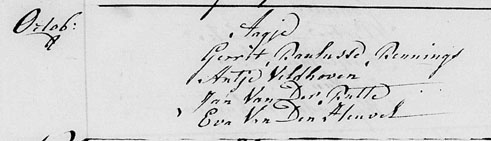 Octob: Aagje
8 Gerrit Paulusse Bennings
Antje Veldhoven
Jan Van Der Putte
Eva Van Den Heuvel